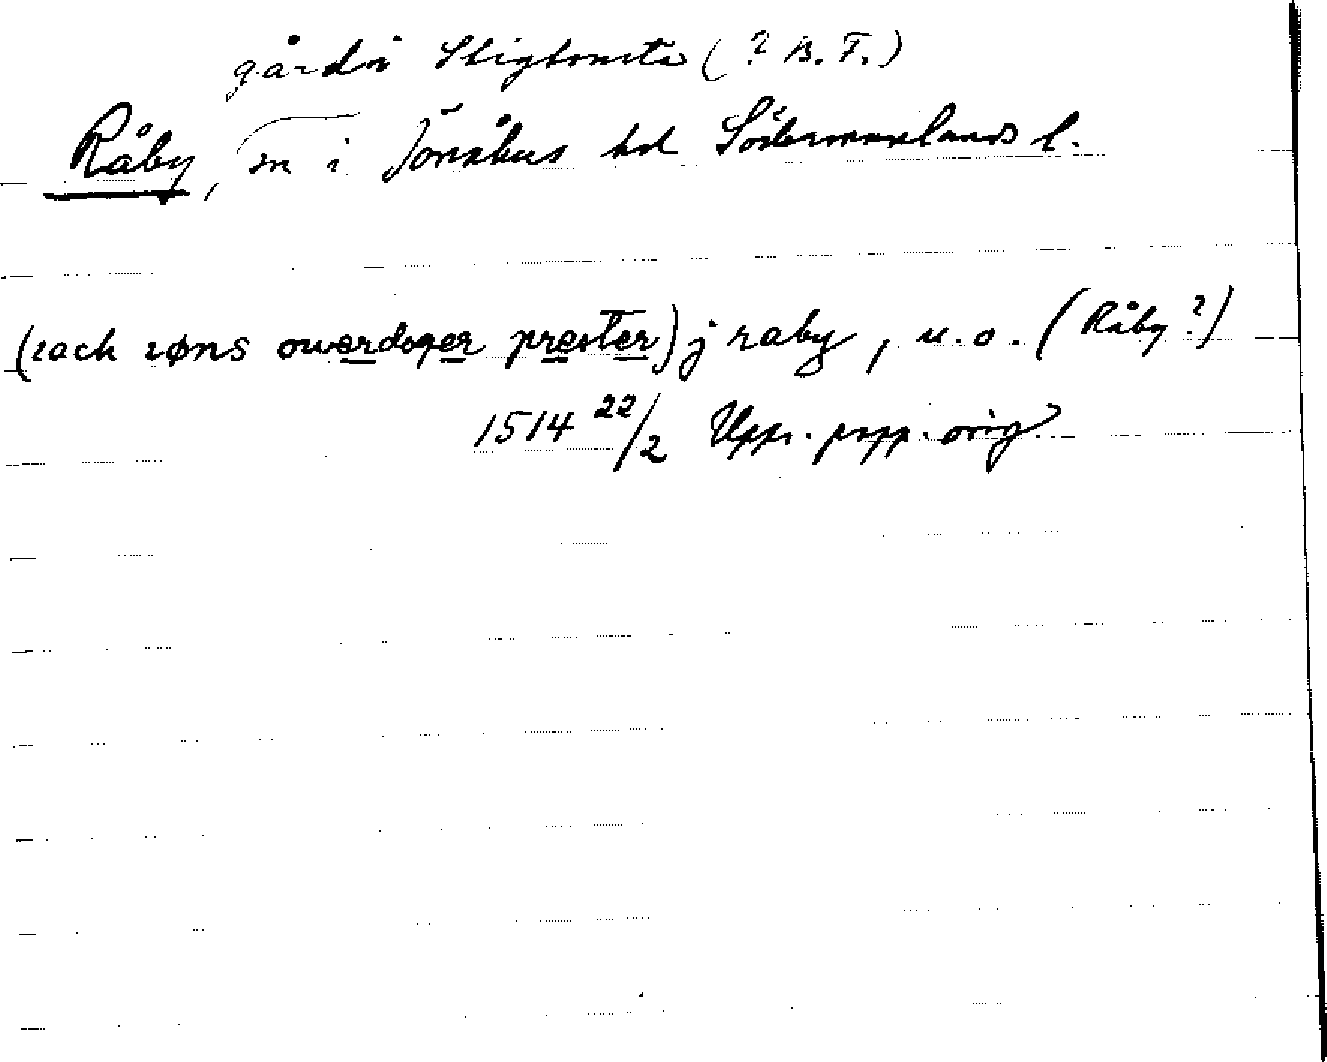 gård i Stigtomta (? B. F.)
Råby, sn i Jönåkers hd Södermanlands l.
(rach røns owerdoger prester) j raby, u.o. (Råby?)
1514 22/2 Upps. papp. orig